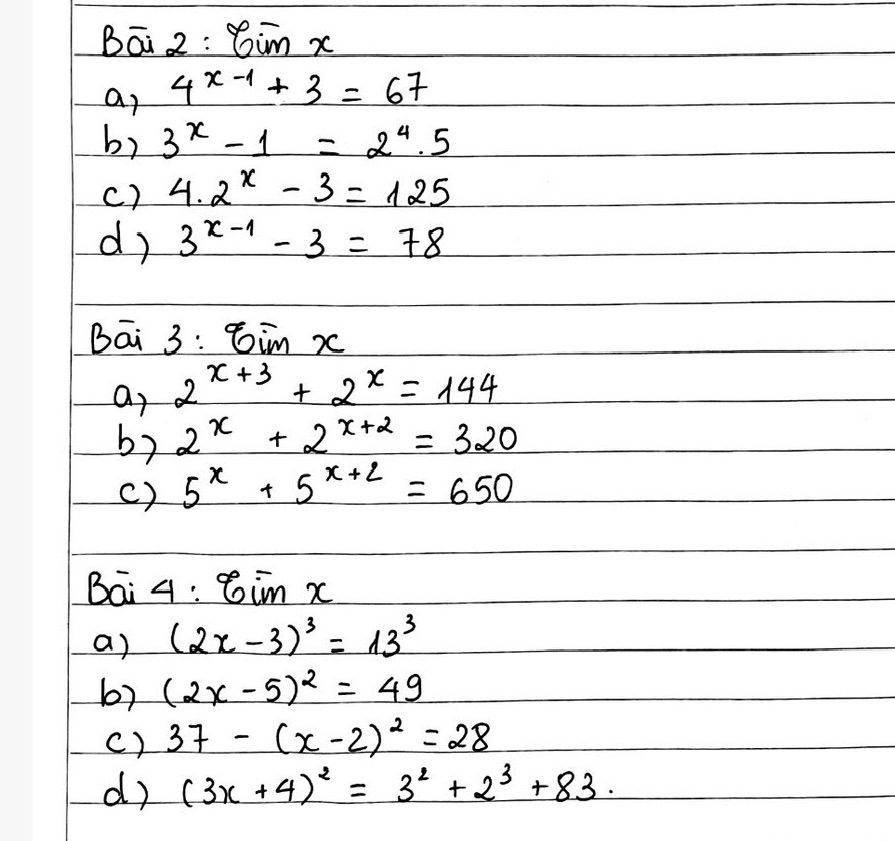 Bài 2 : Tìm x
a, 4^{x-1} + 3 = 67
b) 3^x - 1 = 2^4 . 5
c) 4.2^x - 3 = 125
d) 3^{x-1} - 3 = 78
Bài 3 : Tìm x
a, 2^{x+3} + 2^x = 144
b) 2^x + 2^{x+2} = 320
c) 5^x + 5^{x+2} = 650
Bài 4 : Tìm x
a) (2x - 3)^3 = 13^3
b) (2x - 5)^2 = 49
c) 37 - (x - 2)^2 = 28
d) (3x + 4)^2 = 3^2 + 2^3 + 83.